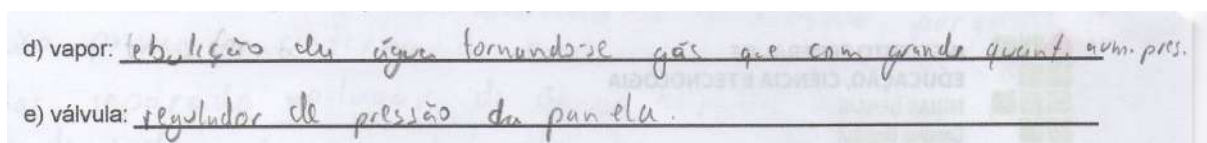 d) vapor: ebulição da água tornando-se gás que com grande quant. aum. pres.
e) válvula: regulador de pressão da panela.